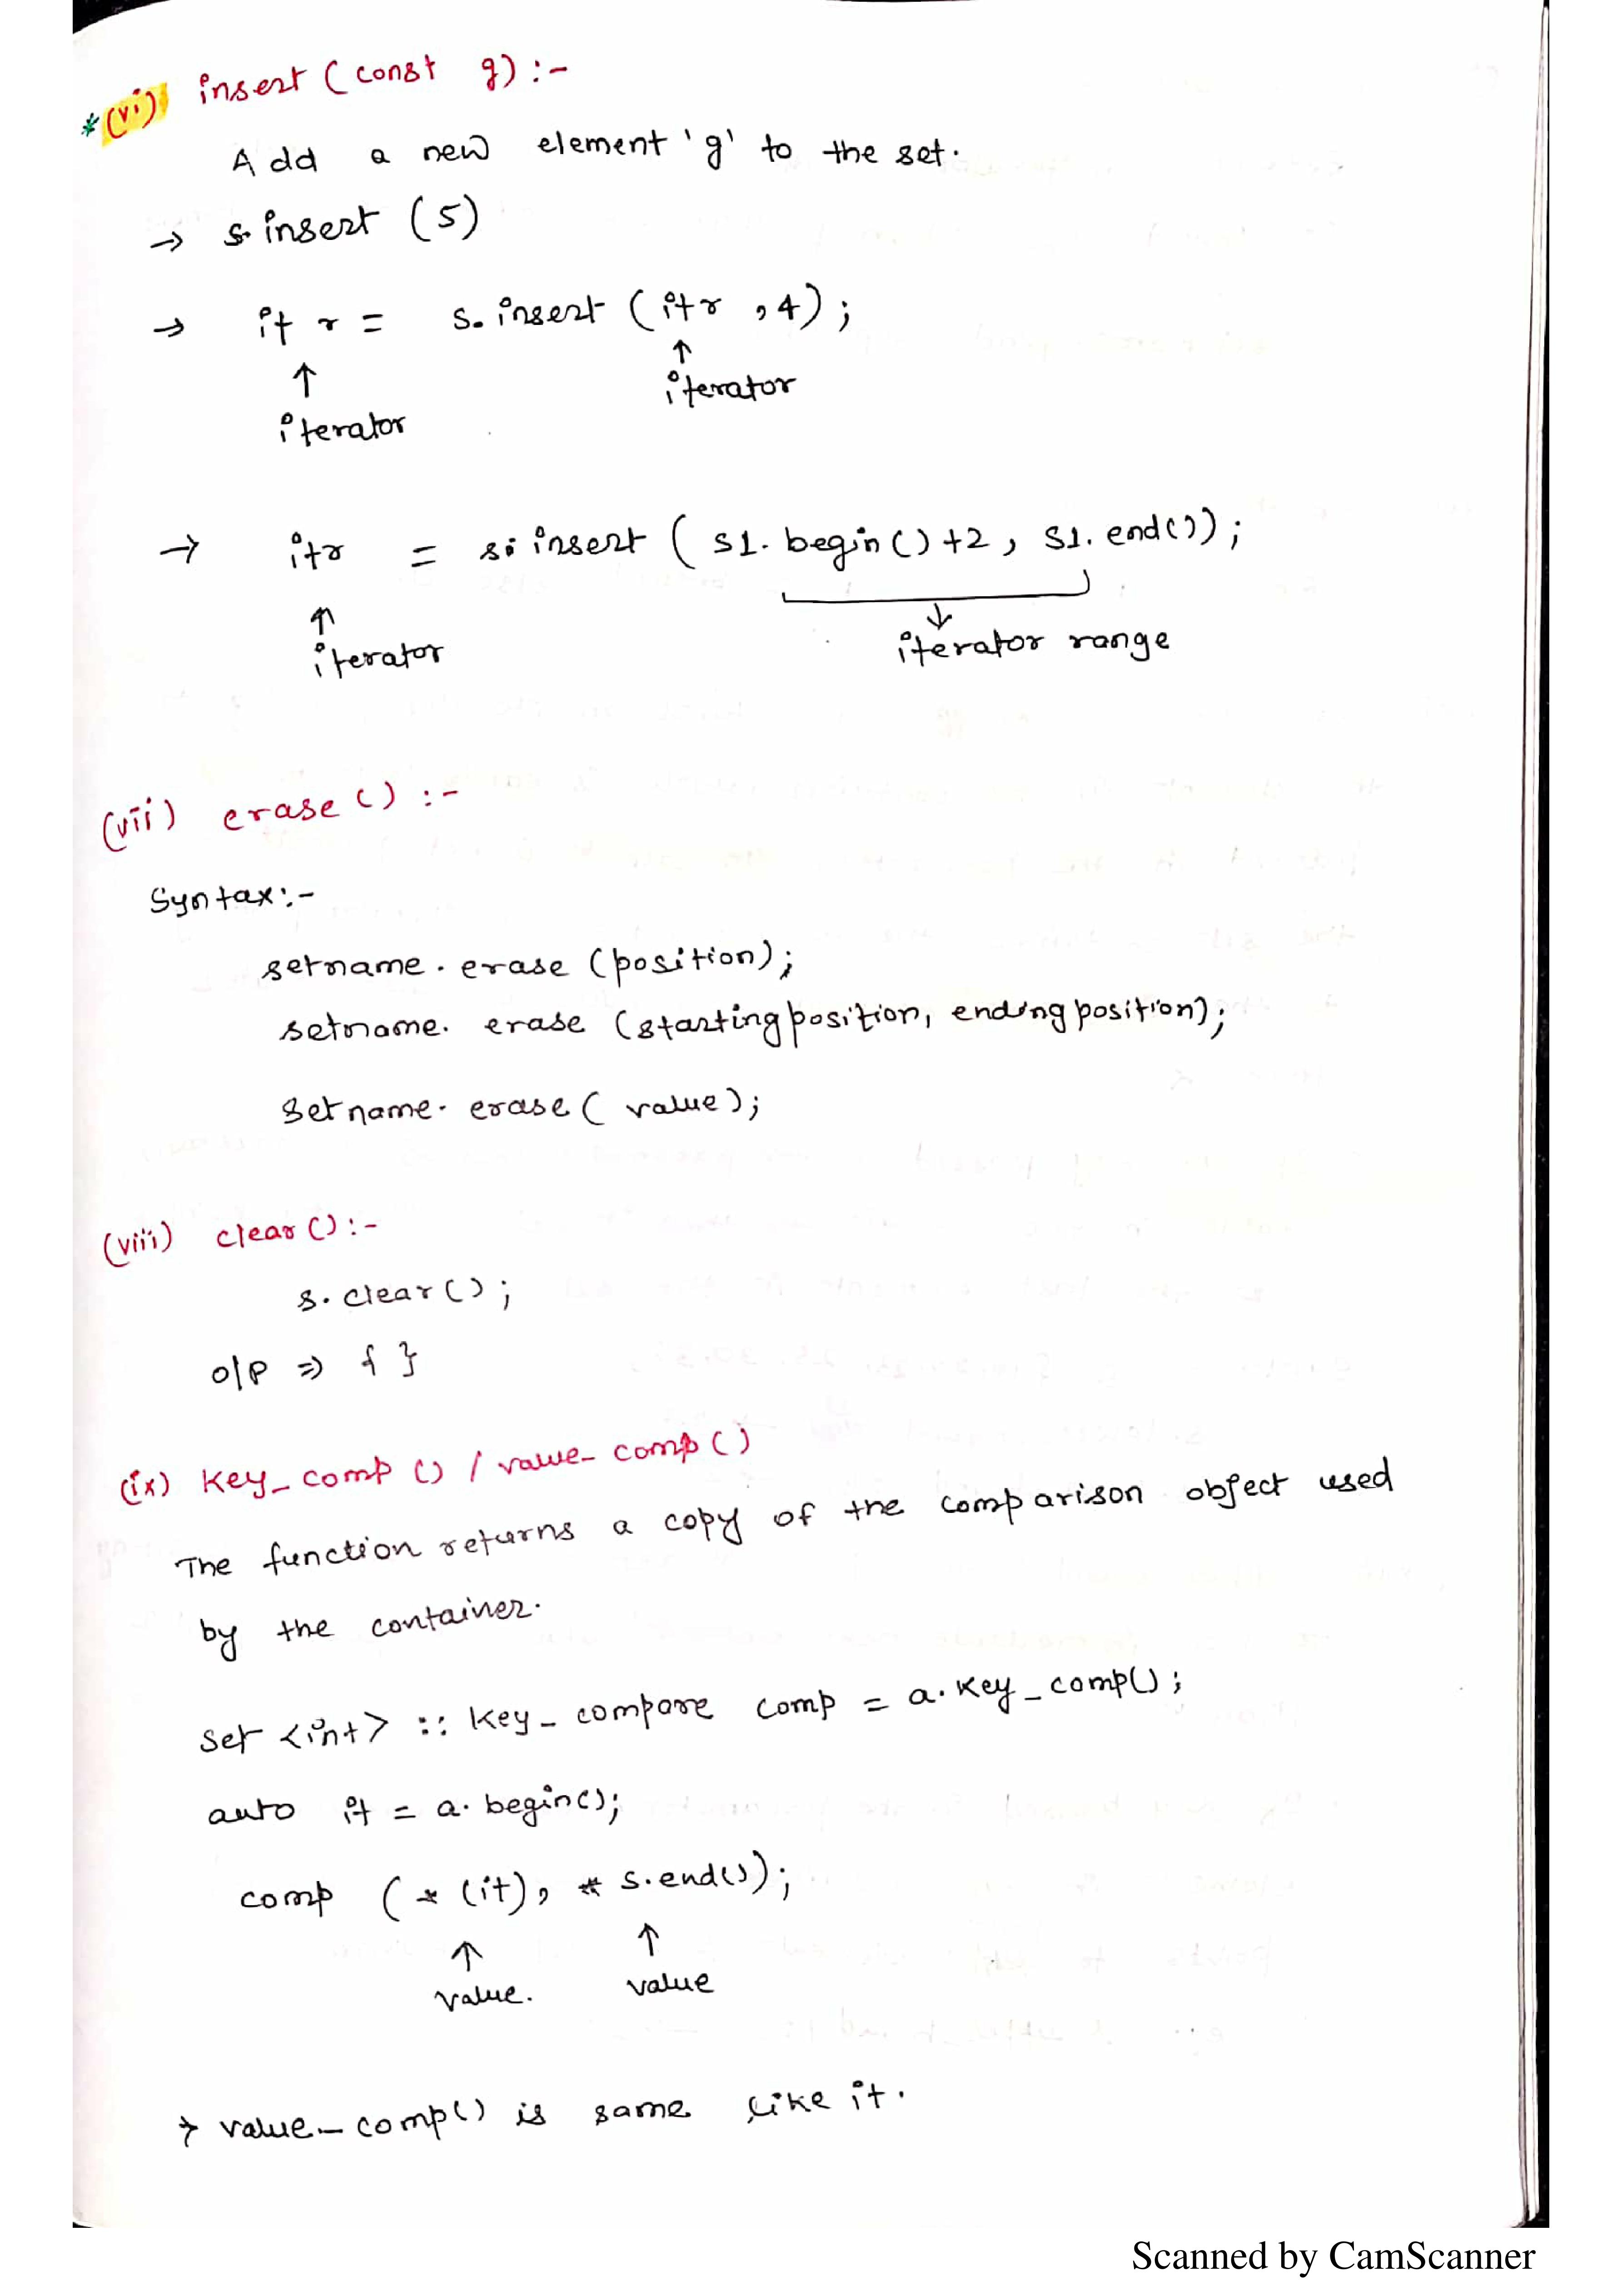 *(vi) insert (const g) :-
Add a new element 'g' to the set.
→ s.insert (5)
→ itr = s.insert (itr ,4);
↑ ↑
iterator iterator
→ itr = s.insert ( s1.begin()+2, s1.end());
↑ ↓
iterator iterator range
(vii) erase() :-
Syntax:-
setname.erase (position);
setname.erase (startingposition, endingposition);
setname.erase( value);
(viii) clear() :-
s.clear();
o/p ⇒ { }
(ix) key_comp () / value_comp ()
The function returns a copy of the comparison object used
by the container.
set <int> :: key_compare comp = a.key_comp();
auto it = a.begin();
comp ( * (it), * s.end());
↑ ↑
value. value
→ value_comp() is same like it.
Scanned by CamScanner